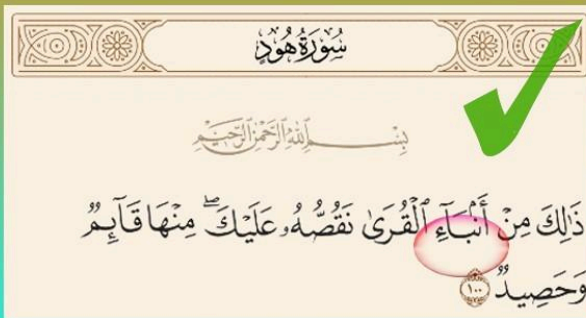 سُورَةُ هُودٍ
بِسْمِ ٱللَّهِ ٱلرَّحْمَٰنِ ٱلرَّحِيمِ
ذَٰلِكَ مِنْ أَنۢبَآءِ ٱلْقُرَىٰ نَقُصُّهُۥ عَلَيْكَ ۖ مِنْهَا قَآئِمٌۭ
وَحَصِيدٌۭ ١٠٠